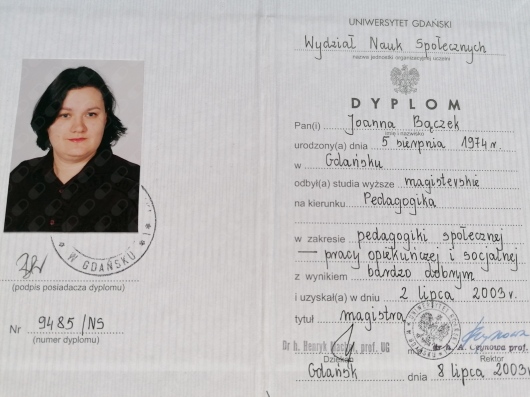 W GDAŃSKU
(podpis posiadacza dyplomu)
Nr 9485/NS
(numer dyplomu)
UNIWERSYTET GDAŃSKI
Wydział Nauk Społecznych
nazwa jednostki organizacyjnej uczelni
DYPLOM
Pan(i) Joanna Bączek
imię i nazwisko
urodzony(a) dnia 5 sierpnia 1974 r.
w Gdańsku
odbył(a) studia wyższe magisterskie
na kierunku Pedagogika
w zakresie pedagogiki społecznej
— pracy opiekuńczej i socjalnej
z wynikiem bardzo dobrym
i uzyskał(a) w dniu 2 lipca 2003 r.
tytuł magistra
Dr h. Henryk prof. UG
Dziekan
prof.
Rektor
Gdańsk dnia 8 lipca 2003